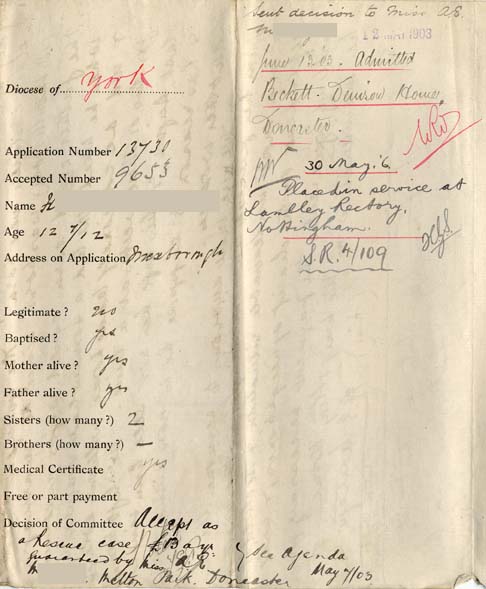 Diocese of York
Application Number 13730
Accepted Number 9653
Name H
Age 12 7/12
Address on Application Mexborough
Legitimate? no
Baptised? yes
Mother alive? yes
Father alive? yes
Sisters (how many?) 2
Brothers (how many?) –
Medical Certificate yes
Free or part payment
Decision of Committee Accept as
a Rescue case £13 a yr
guaranteed by Miss A E
M
Melton Park. Doncaster
See Agenda
May 7/03
Sent decision to Miss A.E.
M
12 MAY 1903
June 13.03. Admitted
Beckett-Denison Home,
Doncaster.
30 May '6
Placed in service at
Lambley Rectory,
Nottingham.
S.R. 4/109